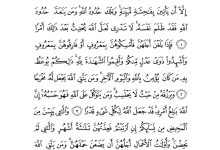 إِلَّا أَن يَأْتِينَ بِفَٰحِشَةٍ مُّبَيِّنَةٍ وَتِلْكَ حُدُودُ ٱللَّهِ وَمَن يَتَعَدَّ حُدُودَ
ٱللَّهِ فَقَدْ ظَلَمَ نَفْسَهُۥ لَا تَدْرِى لَعَلَّ ٱللَّهَ يُحْدِثُ بَعْدَ ذَٰلِكَ أَمْرًا
١ فَإِذَا بَلَغْنَ أَجَلَهُنَّ فَأَمْسِكُوهُنَّ بِمَعْرُوفٍ أَوْ فَارِقُوهُنَّ بِمَعْرُوفٍ
وَأَشْهِدُوا۟ ذَوَىْ عَدْلٍ مِّنكُمْ وَأَقِيمُوا۟ ٱلشَّهَٰدَةَ لِلَّهِ ذَٰلِكُمْ يُوعَظُ بِهِۦ
مَن كَانَ يُؤْمِنُ بِٱللَّهِ وَٱلْيَوْمِ ٱلْءَاخِرِ وَمَن يَتَّقِ ٱللَّهَ يَجْعَل لَّهُۥ مَخْرَجًا
٢ وَيَرْزُقْهُ مِنْ حَيْثُ لَا يَحْتَسِبُ وَمَن يَتَوَكَّلْ عَلَى ٱللَّهِ فَهُوَ حَسْبُهُۥٓ إِنَّ
ٱللَّهَ بَٰلِغُ أَمْرِهِۦ قَدْ جَعَلَ ٱللَّهُ لِكُلِّ شَىْءٍ قَدْرًا ٣ وَٱلَّٰٓـِٔى يَئِسْنَ مِنَ
ٱلْمَحِيضِ مِن نِّسَآئِكُمْ إِنِ ٱرْتَبْتُمْ فَعِدَّتُهُنَّ ثَلَٰثَةُ أَشْهُرٍ وَٱلَّٰٓـِٔى لَمْ
يَحِضْنَ وَأُو۟لَٰتُ ٱلْأَحْمَالِ أَجَلُهُنَّ أَن يَضَعْنَ حَمْلَهُنَّ وَمَن يَتَّقِ